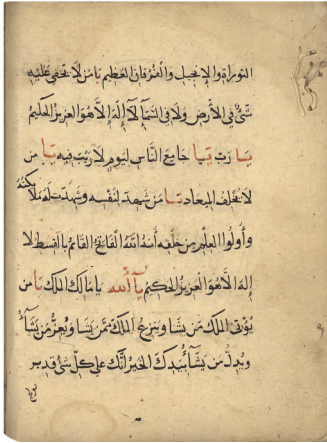 التوراة والانجيل والفرقان العظيم يا من لا تخفى عليه
شئ في الأرض ولا في السماء لا إله إلا هو العزيز الحكيم
يا رب يا جامع الناس ليوم لا ريب فيه يا من
لا يخلف الميعاد يا من شهد لنفسه وشهدت له ملائكته
وأولوا العلم من خلقه أنه الله القائم بالقسط لا
إله إلا هو العزيز الحكيم يا الله يا مالك الملك يا من
يؤتي الملك من يشا وينزع الملك ممن يشا ويعز من يشاء
ويذل من يشاء بيدك الخير إنك على كل شئ قدير